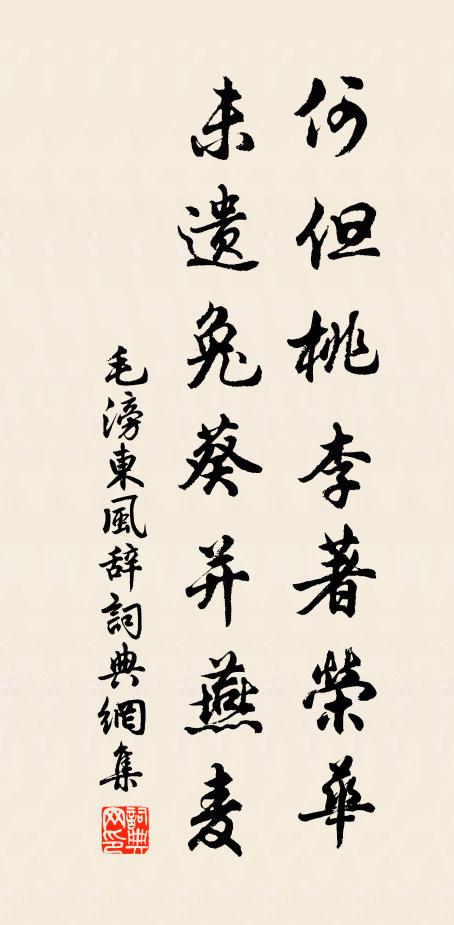 何但桃李著榮華
未遺兔葵并燕麦
毛滂東風辞詞典網集
詞典网印